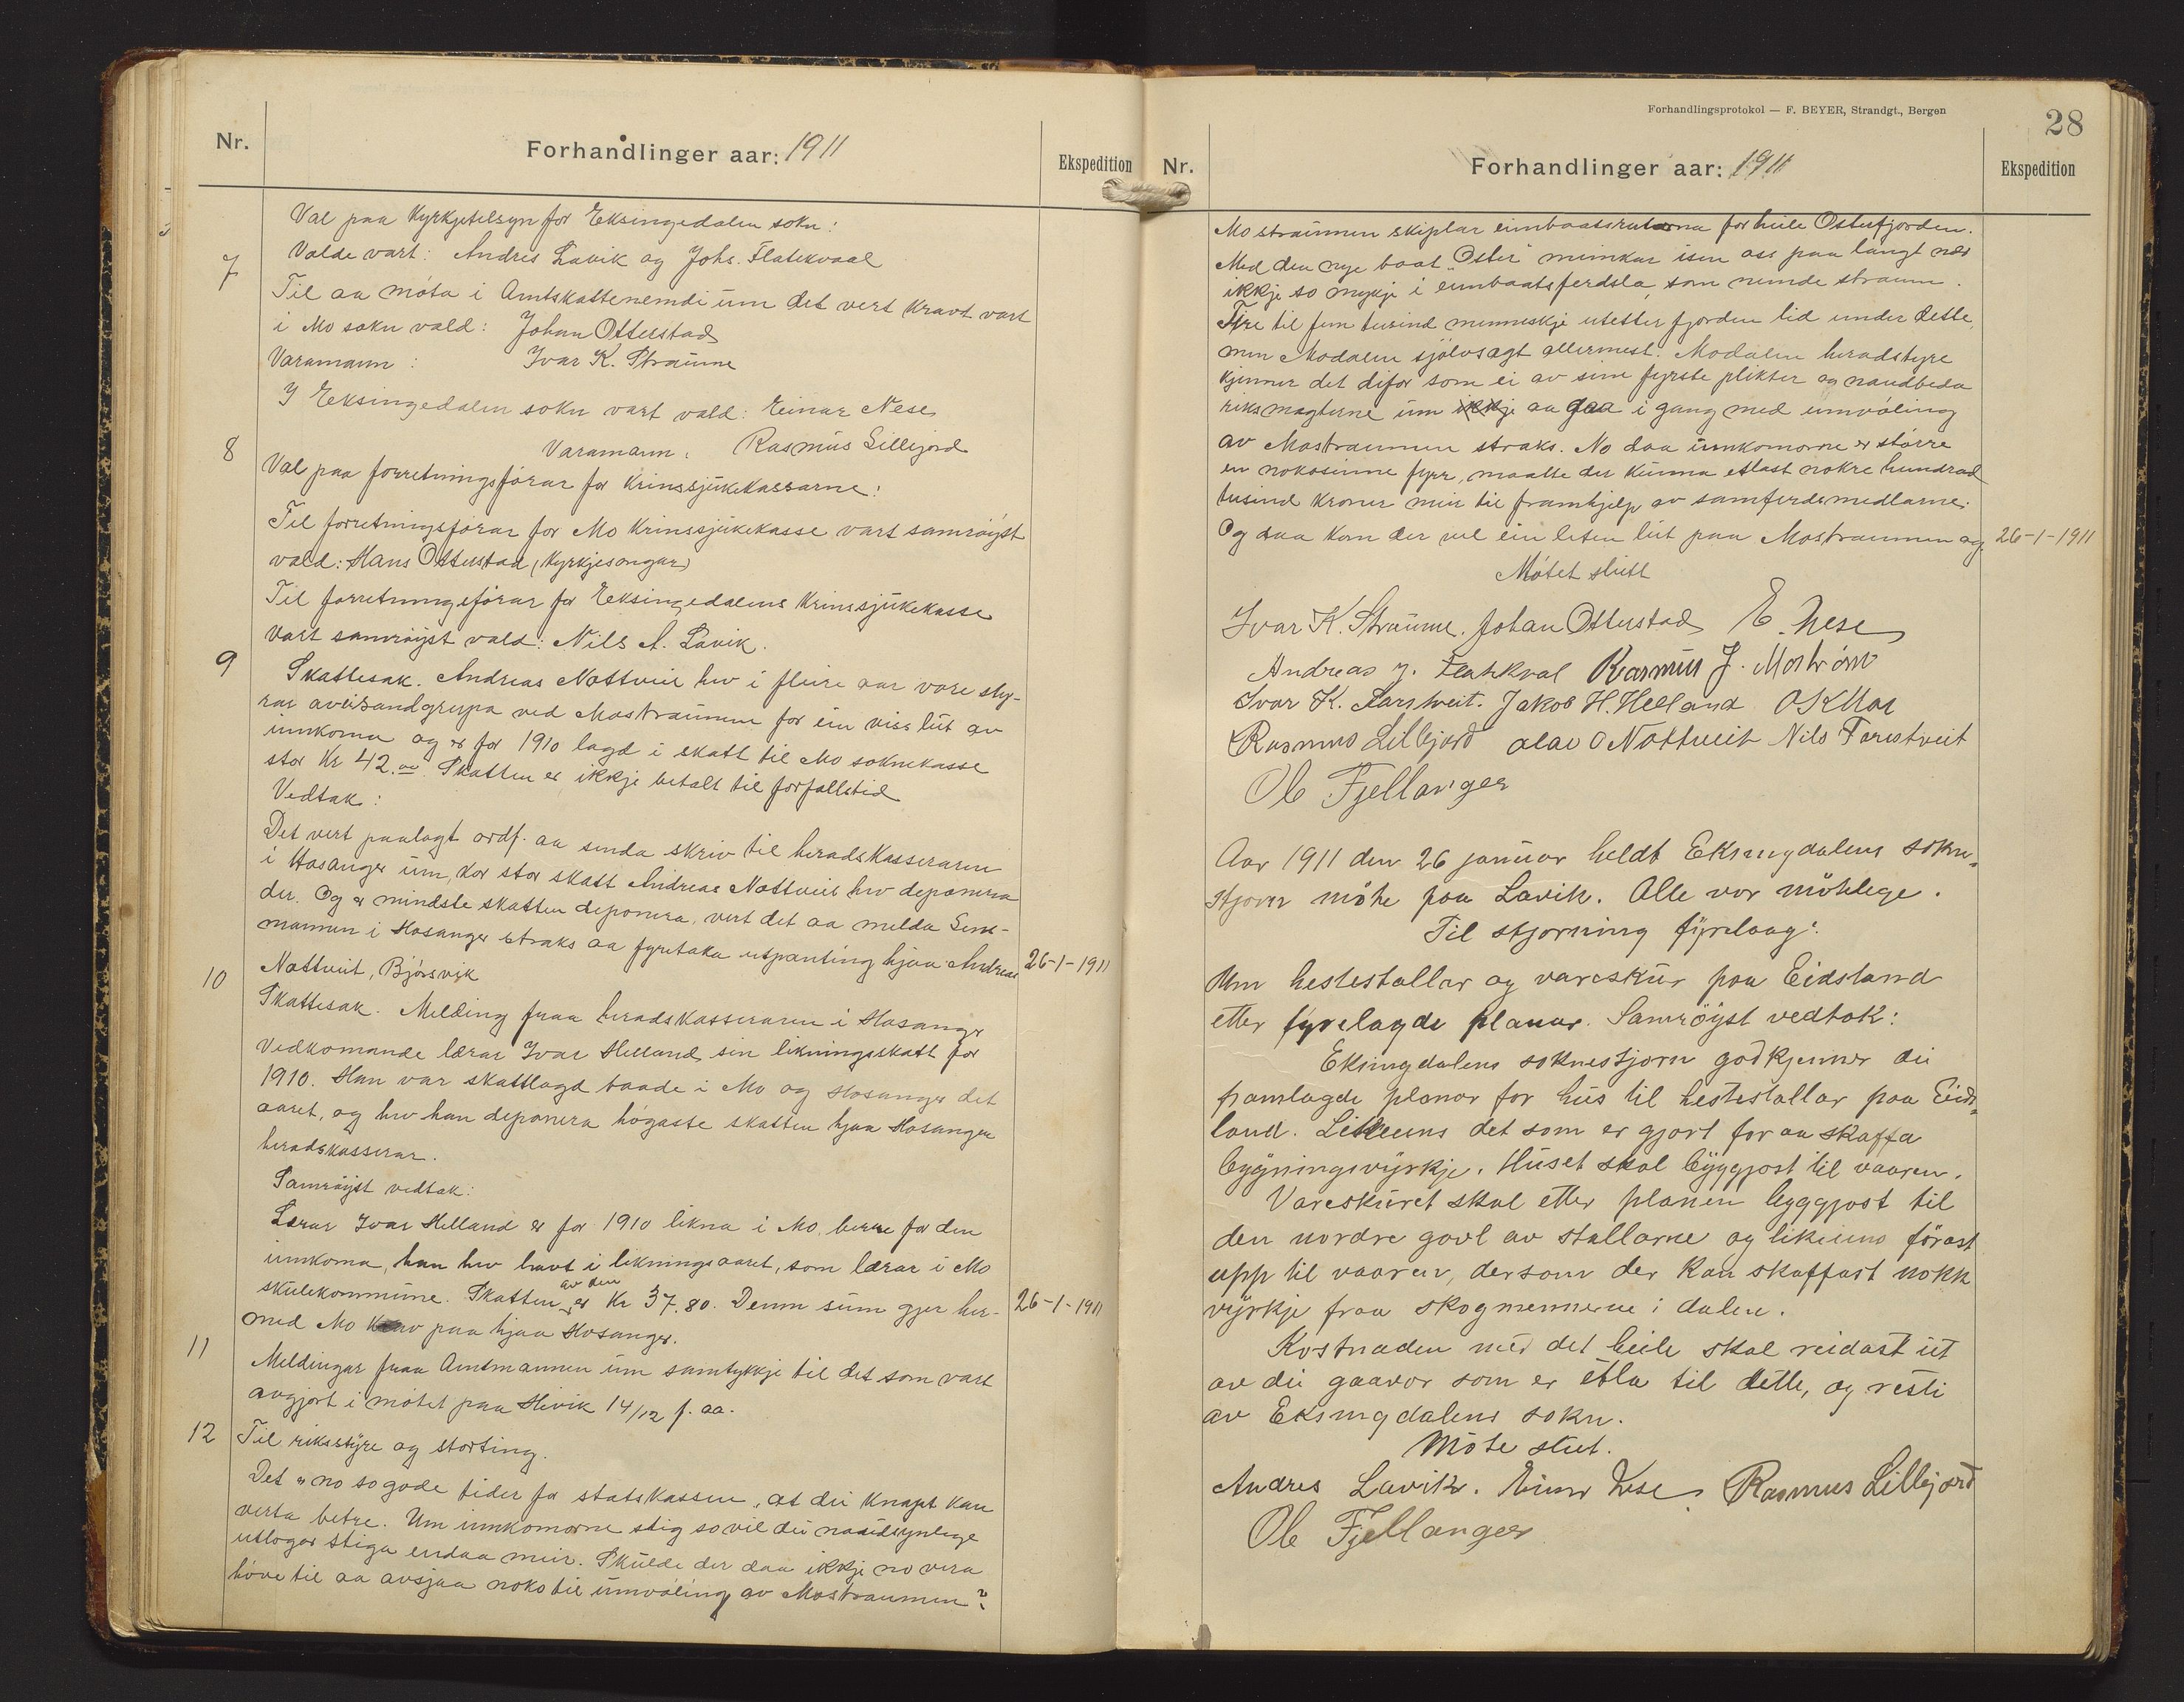 Nr.
Forhandlinger aar: 1911
Ekspedition
Val paa Kyrkjetilsyn for Eksingedalen sokn:
7 Valde vart: Andres Lavik og Johs. Flatekvaal
Til aa møta i Amtskattenemdi um det vert kravt vart
i Mo sokn vald: Johan Otterstad
Varamann: Ivar K. Straume
I Eksingedalen sokn vart vald: Einar Nese
Varamann: Rasmus Lillejord
8 Val paa forretningsførar for Krinssjukekassarne:
Til forretningsførar for Mo Krinssjukekasse vart samrøyst
vald: Hans Otterstad (Kyrkjesongar)
Til forretningsførar for Eksingedalens Krinssjukekasse
vart samrøyst vald: Nils A. Lavik.
9 Skattesak. Andreas Nottveit hev i fleire aar vore sty-
rar av eisandgrupa ved Mostraumen for ein viss lut av
innkoma og er for 1910 lagd i skatt til Mo soknekasse
stor Kr 42.00 Skatten er ikkje betalt til forfallstid
Vedtak:
Det vert paalagt ordf. aa senda skriv til heradskasseraren
i Hosanger um, kor stor skatt Andreas Nottveit hev deponera
der. Og er mindste skatten deponera, vert det aa melda Lens-
mannen i Hosanger straks aa fyretaka utpanting hjaa Andreas
Nottveit, Bjørsvik
26-1-1911
10 Skattesak. Melding fraa heradskasseraren i Hosanger
vedkomande lærar Ivar Helland sin likningsskatt for
1910. Han var skattlagd baade i Mo og Hosanger det
aaret, og hev han deponera høgaste skatten hjaa Hosanger
heradskasserar.
Samrøyst vedtak:
Lærar Ivar Helland er for 1910 likna i Mo berre for den
innkoma, han hev havt i likningsaaret, som lærar i Mo
skulekommune. Skatten av den er Kr 37.80. Denne sum gjer her-
med Mo Krav paa hjaa Hosanger.
26-1-1911
11 Meldingar fraa Amtmannen um samtykkje til det som vart
avgjort i møtet paa Helvik 14/12 f. aa.
12 Til riksstyre og storting.
Det er no so gode tider for statskassen, at dei knapt kan
verta betre. Um innkomorne stig so vil dei naudsynlege
utlogor stiga endaa meir. Skulde der daa ikkje no vera
høve til aa avsjaa noko til umvøling av Mostraumen?
Forhandlingsprotokol — F. BEYER, Strandgt., Bergen
28
Nr.
Forhandlinger aar: 1911
Ekspedition
Mostraumen skiplar eimbaatsrutorna for heile Osterfjorden.
Med den nye baat "Oster" minkar isen oss paa langt nær
ikkje so mykje i eimbaatsferdsla, som nemde straum.
Fire til fem tusind menneskje utetter fjorden lid under dette,
men Modalen sjølvsagt allermest. Modalen heradstyre
kjenner det difor som ei av sine fyrste plikter og naudbeda
riksmagterne um ikkje aa gaa i gang med umvøling
av Mostraumen straks. No daa innkomorne er større
en nokosinne fyrr, maatte der kunna etlast nokre hundrad
tusind kroner meir til framhjelp av samferdsmedlarne.
Og daa kom der vel ein liten lut paa Mostraumen og.
26-1-1911
Møtet slutt
Ivar K. Straume. Johan Otterstad E. Nese
Andreas J. Flatekval Rasmus J. Moström
Ivar K. Farstveit. Jakob H. Helland O K Moe
Rasmus Lillejord Olav O Nottveit Nils Farestveit
Ole Fjellanger
Aar 1911 den 26 januar heldt Eksingdalens sokne-
stjorn møte paa Lavik. Alle var møtelege.
Til stjorning fyrelaag:
Um hestestallar og vareskur paa Eidsland
etter fyrelagde planar. Samrøyst vedtok:
Eksingdalens soknestjorn godkjenner dei
framlagde planar for hus til hestestallar paa Eids-
land. Likeeins det som er gjort for aa skaffa
bygningsvyrkje. Huset skal byggjast til vaaren.
Vareskuret skal etter planen byggjast til
den nordre gavl av stallarne og likeeins førast
upp til vaaren, dersom der kan skaffast nokk
vyrkje fraa skogmennerne i dalen.
Kostnaden med det heile skal reidast ut
av dei gaavor som er etla til dette, og resti
av Eksingdalens sokn.
Møte slut.
Andres Lavik. Einar Nese Rasmus Lillejord
Ole Fjellanger